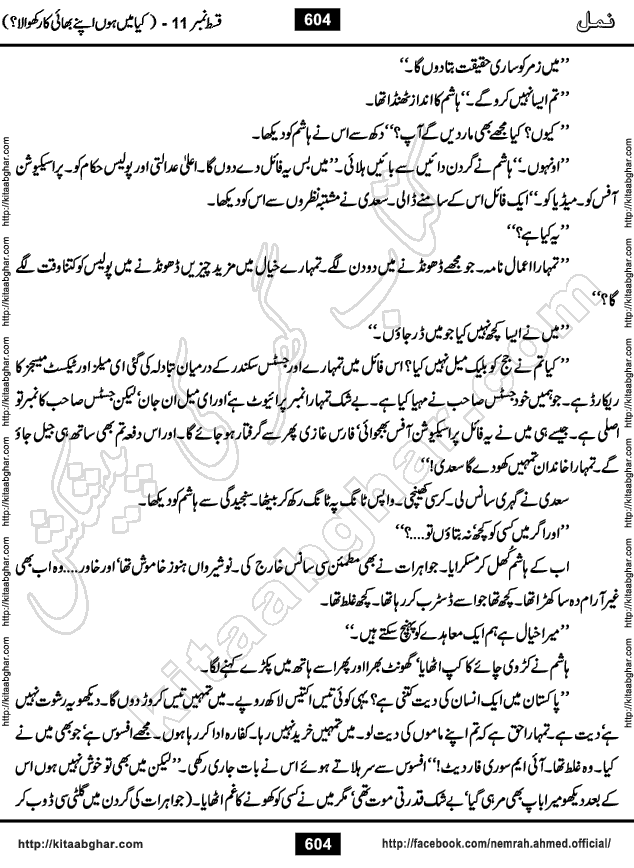 نمل
604
قسط نمبر 11 - ( کیا میں ہوں اپنے بھائی کا رکھوالا؟)
’’میں زمر کو ساری حقیقت بتا دوں گا۔‘‘
’’تم ایسا نہیں کرو گے۔‘‘ ہاشم کا انداز ٹھنڈا تھا۔
’’کیوں؟ کیا مجھے بھی مار دیں گے آپ؟‘‘ دکھ سے اس نے ہاشم کو دیکھا۔
’’اونہوں۔‘‘ ہاشم نے گردن دائیں سے بائیں ہلائی۔ ’’میں بس یہ فائل دے دوں گا۔ اعلیٰ عدالتی اور پولیس حکام کو۔ پراسیکیوشن
آفس کو۔ میڈیا کو۔‘‘ ایک فائل اس کے سامنے ڈالی۔ سعدی نے مشتبہ نظروں سے اس کو دیکھا۔
’’یہ کیا ہے؟‘‘
’’تمہارا اعمال نامہ۔ جو مجھے ڈھونڈنے میں دو دن لگے۔ تمہارے خیال میں مزید چیزیں ڈھونڈنے میں پولیس کو کتنا وقت لگے
گا؟‘‘
’’میں نے ایسا کچھ نہیں کیا جو میں ڈر جاؤں۔‘‘
’’کیا تم نے جج کو بلیک میل نہیں کیا؟ اس فائل میں تمہارے اور جسٹس سکندر کے درمیان تبادلہ کی گئی ای میلز اور ٹیکسٹ میسجز کا
ریکارڈ ہے۔ جو ہمیں خود جسٹس صاحب نے مہیا کیا ہے۔ بے شک تمہارا نمبر پرائیوٹ ہے‘ اور ای میل ان جان‘ لیکن جسٹس صاحب کا نمبر تو
اصلی ہے۔ جیسے ہی میں نے یہ فائل پراسیکیوشن آفس بھجوائی‘ فارس غازی پھر سے گرفتار ہو جائے گا۔ اور اس دفعہ تم بھی ساتھ ہی جیل جاؤ
گے۔ تمہارا خاندان تمہیں کھو دے گا سعدی!‘‘
سعدی نے گہری سانس لی۔ کرسی کھینچی۔ واپس ٹانگ پہ ٹانگ رکھ کر بیٹھا۔ سنجیدگی سے ہاشم کو دیکھا۔
’’اور اگر میں کسی کو کچھ‘ نہ بتاؤں تو....؟‘‘
اب کے ہاشم کُھل کر مسکرایا۔ جواہرات نے بھی مطمئن سی سانس خارج کی۔ نوشیرواں ہنوز خاموش تھا‘ اور خاور.... وہ اب بھی
غیر آرام دہ سا کھڑا تھا۔ کچھ تھا جو اسے ڈسٹرب کر رہا تھا۔ کچھ غلط تھا۔
’’میرا خیال ہے ہم ایک معاہدے کو پہنچ سکتے ہیں۔‘‘
ہاشم نے کڑوی چائے کا کپ اٹھایا‘ گھونٹ بھرا اور پھر اسے ہاتھ میں پکڑے کہنے لگا۔
’’پاکستان میں ایک انسان کی دیت کتنی ہے؟ یہی کوئی تیس اکتیس لاکھ روپے۔ میں تمہیں تیس کروڑ دوں گا۔ دیکھو یہ رشوت نہیں
ہے‘ دیت ہے۔ تمہارا حق ہے کہ تم اپنے ماموں کی دیت لو۔ میں تمہیں خرید نہیں رہا۔ کفارہ ادا کر رہا ہوں۔ مجھے افسوس ہے‘ جو بھی میں نے
کیا۔ وہ غلط تھا۔ آئی ایم سوری فار دیٹ!‘‘ افسوس سے سر ہلاتے ہوئے اس نے بات جاری رکھی۔ ’’لیکن میں بھی تو خوش نہیں ہوں اس
کے بعد دیکھو میرا باپ بھی مر ہی گیا‘ بے شک قدرتی موت تھی‘ مگر میں نے کسی کو کھونے کا غم اٹھایا۔ (جواہرات کی گردن میں گلٹی سی ڈوب کر
http://kitaabghar.com
604
http://facebook.com/nemrah.ahmed.official/
http://kitaabghar.com http://kitaabghar.com http://kitaabghar.com http://kitaabghar.com http://kitaabghar.com http://kitaabghar.com
http://kitaabghar.com http://kitaabghar.com http://kitaabghar.com http://kitaabghar.com http://kitaabghar.com http://kitaabghar.com
کتاب گھر کی پیشکش
kitaabghar.com